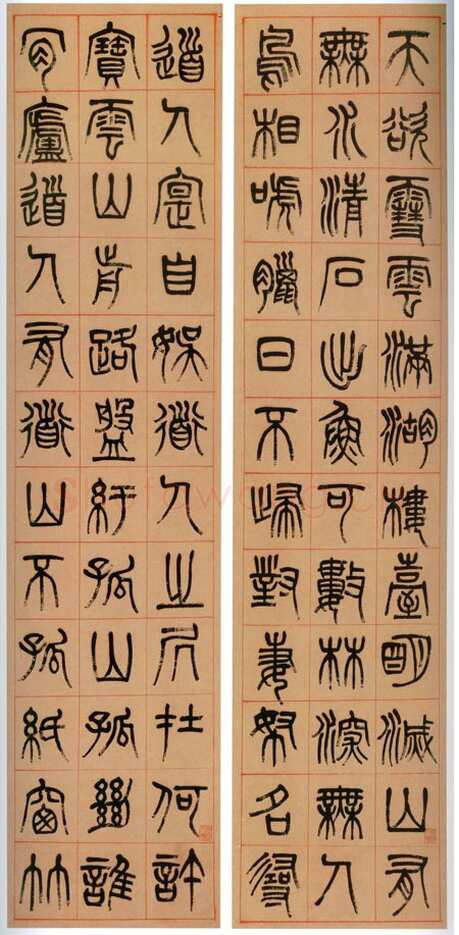 天欲雪雲滿湖樓臺明滅山有
無水清石出魚可數林深無人
鳥相嘑臘日不歸對妻孥名尋
道人寔自娛道人之凥在何許
寶雲山前路盤紆孤山孤絕誰
肯廬道人有道山不孤紙窗竹